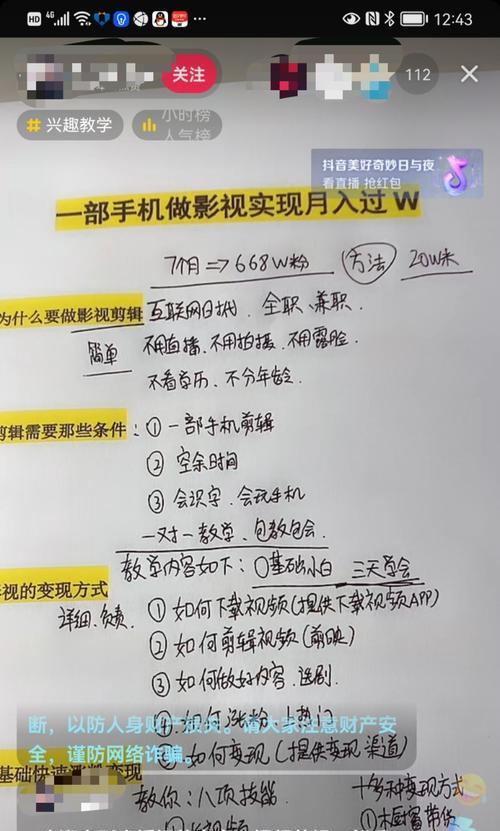 HD 4G 12:43
关注
112
兴趣教学
小时榜
人气榜
抖音美好奇妙日与夜
看直播 抢红包
一部手机做影视实现月入过 W
7个月⇒668W粉 方法 20W米
为什么要做影视剪辑 互联网时代、全职、兼职、
简单 不用直播、不用拍摄、不用露脸、
不看学历、不分年龄、
剪辑需要那些条件： ① 一部手机剪辑
② 空余时间
③ 会识字、会玩手机
一对一教学、包教包会、
教学内容如下：0基础小白 三天学会
视的变现方式
详细、负责、 ① 如何下载视频(提供下载视频APP)
② 如何剪辑视频(剪映)
③ 如何做好内容、选剧
④ 如何涨粉、上热门
断，以防人身财产损失。请大家注意财产安
全，谨防网络诈骗。
如何变现(提供变现渠道)
基础快速 变现
教你：八项技能 十多种变现方式
视频